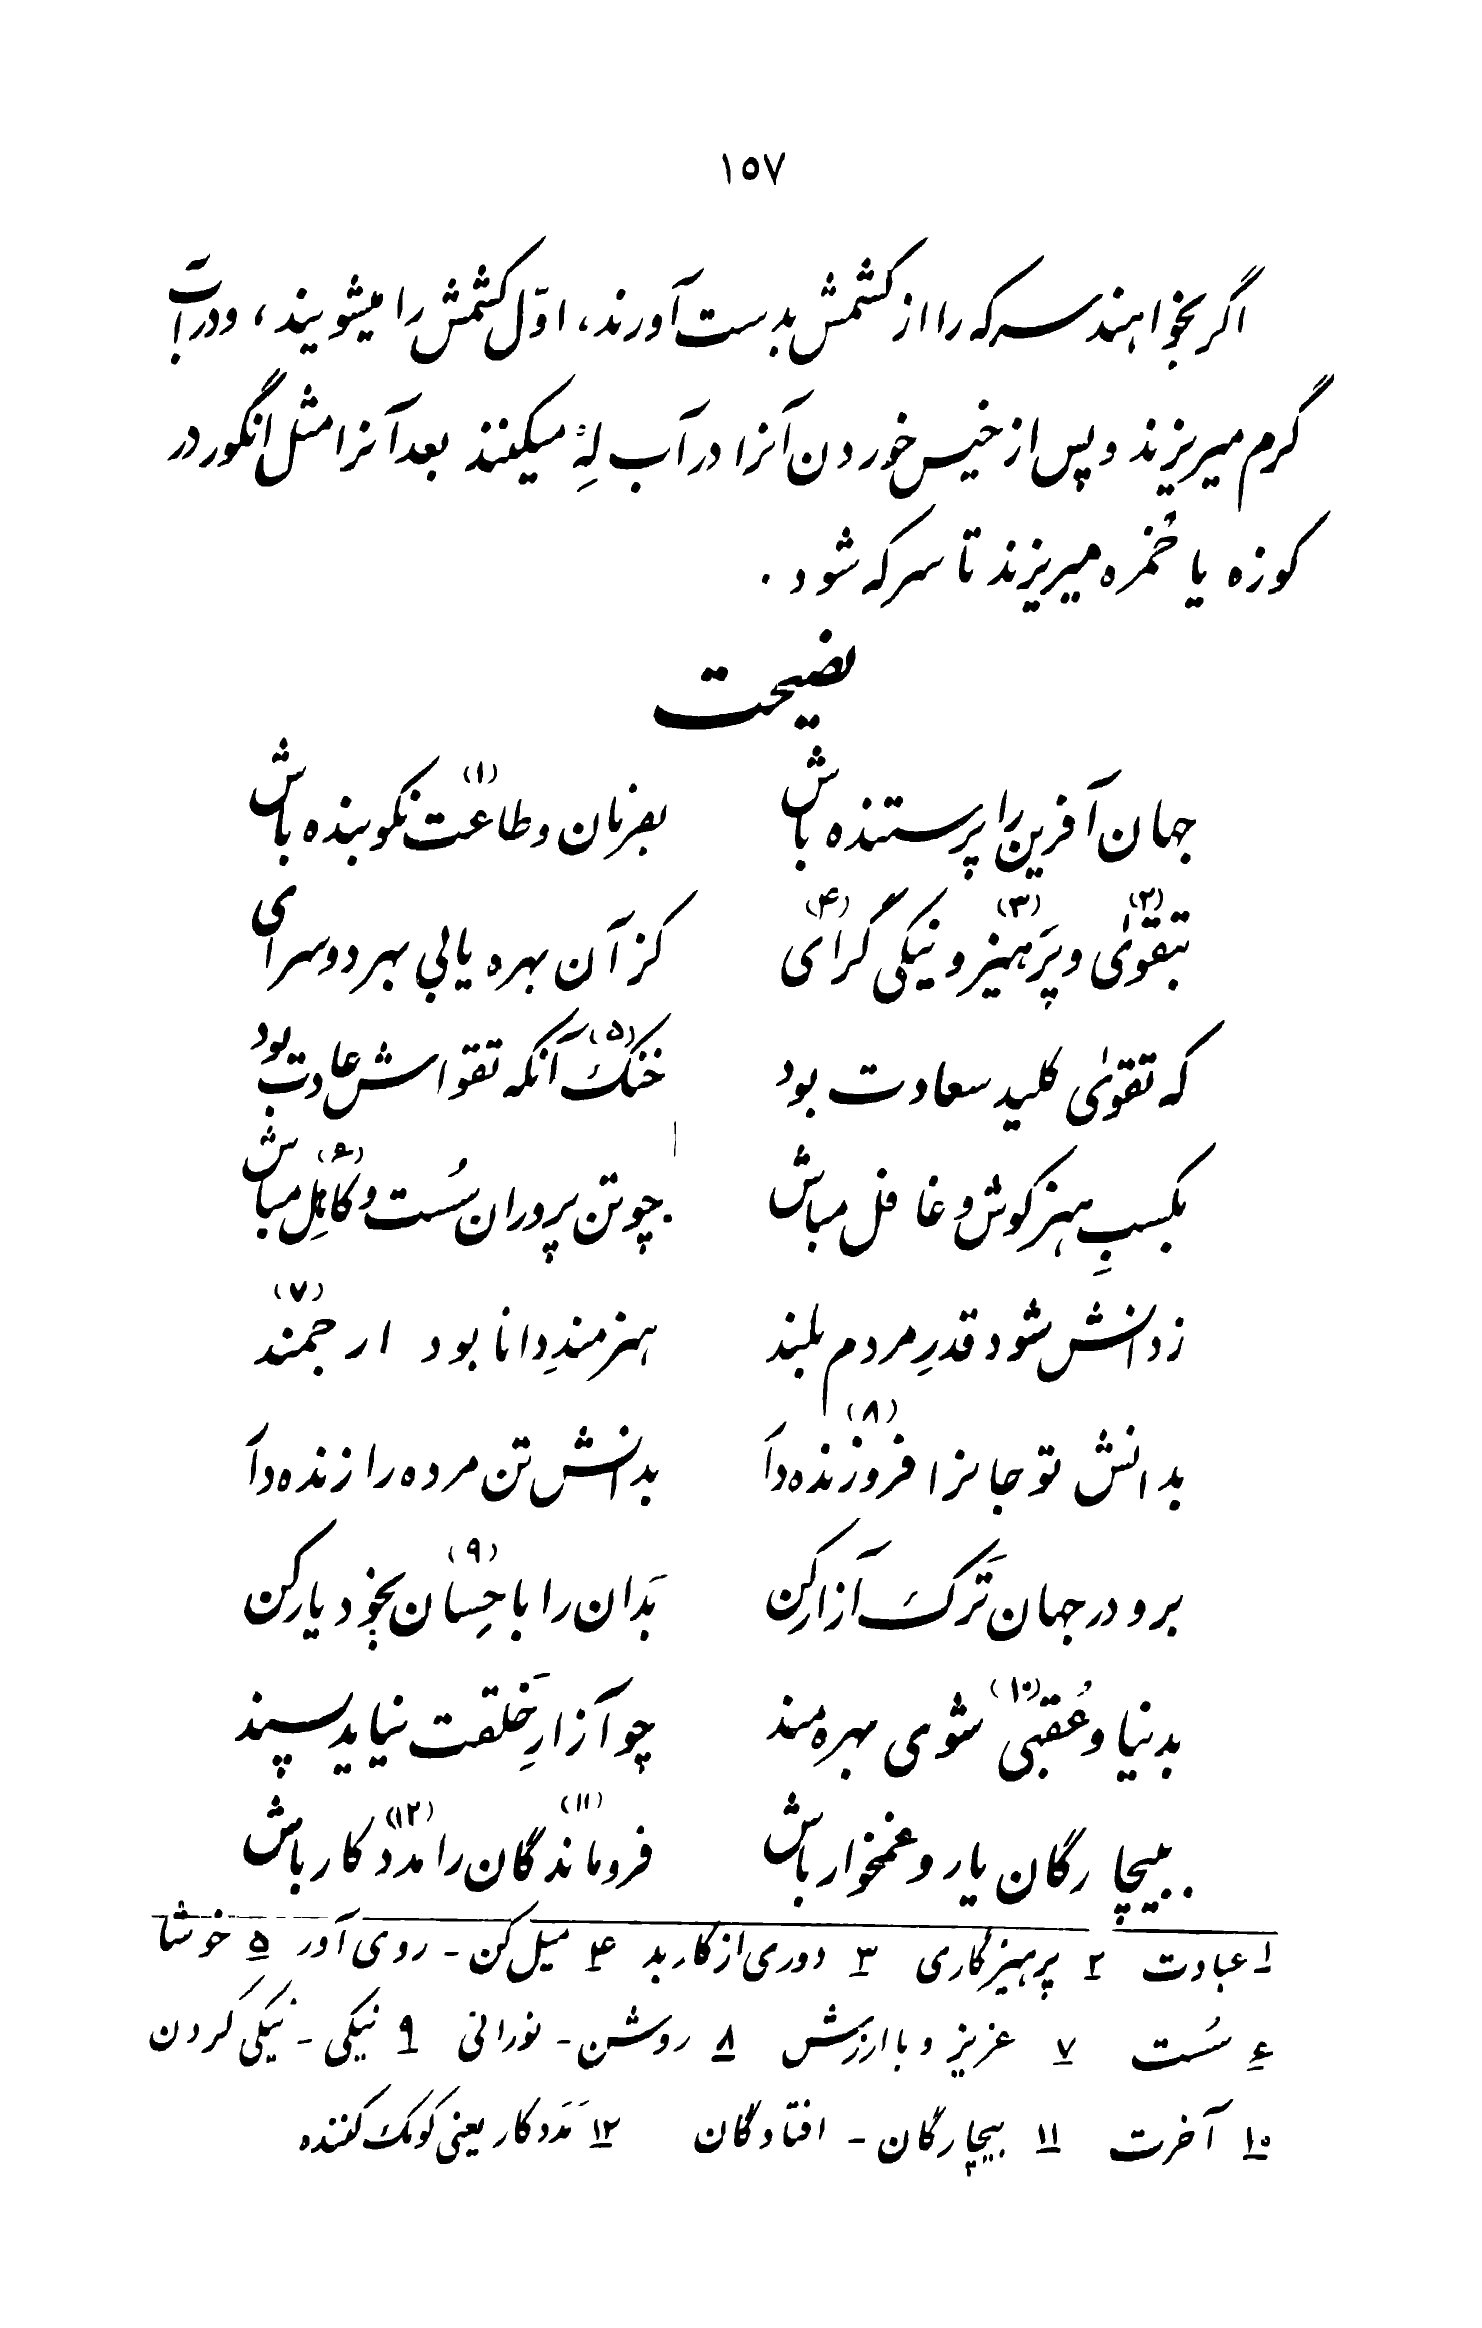 ١٥٧
اگر بخواهند سرکه را از کشمش بدست آورند، اوّل کشمش را میشویند، و در آب
گرم میریزند و پس از خیس خوردن آنرا در آب لِهٔ میکنند بعد آنرا مثل انگور در
کوزه یا خُمره میریزند تا سرکه شود .
نصیحت
جهان آفرین را پرستنده باش بفرمان و طاعت (۱) نکو بنده باش
بتقوٰی (۲) و پَرهیز (۳) و نیکی گرای (۴) کز آن بهره یابی بهر دو سرای
که تقوٰی کلید سعادت بود خنک (۵) آنکه تقواش عادت بود
بکسبِ هنر کوش و غافل مباش چو تن پروران سُست و کاهِل (۶) مباش
ز دانش شود قدرِ مردم بلند هنرمندِ دانا بود ارجمند (۷)
بدانش تو جانرا فروزنده (۸) دآ بدانش تن مرده را زنده دآ
برو در جهان تَرک آزار کن بَدان را باحِسان (۹) بخود یار کن
بدنیا و عُقبی (۱۰) شوی بهره مند چو آزارِ خَلقت نیاید پسند
ببیچارگان یار و غمخوار باش فروماندگان (۱۱) را مدد کار (۱۲) باش
۱ عبادت ۲ پرهیزگاری ۳ دوری از کار بد ۴ میل کن - روی آور ۵ خوشا
۶ سُست ۷ عزیز و با ارزش ۸ روشن - نورانی ۹ نیکی - نیکی کردن
۱۰ آخرت ۱۱ بیچارگان - افتادگان ۱۲ مَدَد کار یعنی کومک کننده